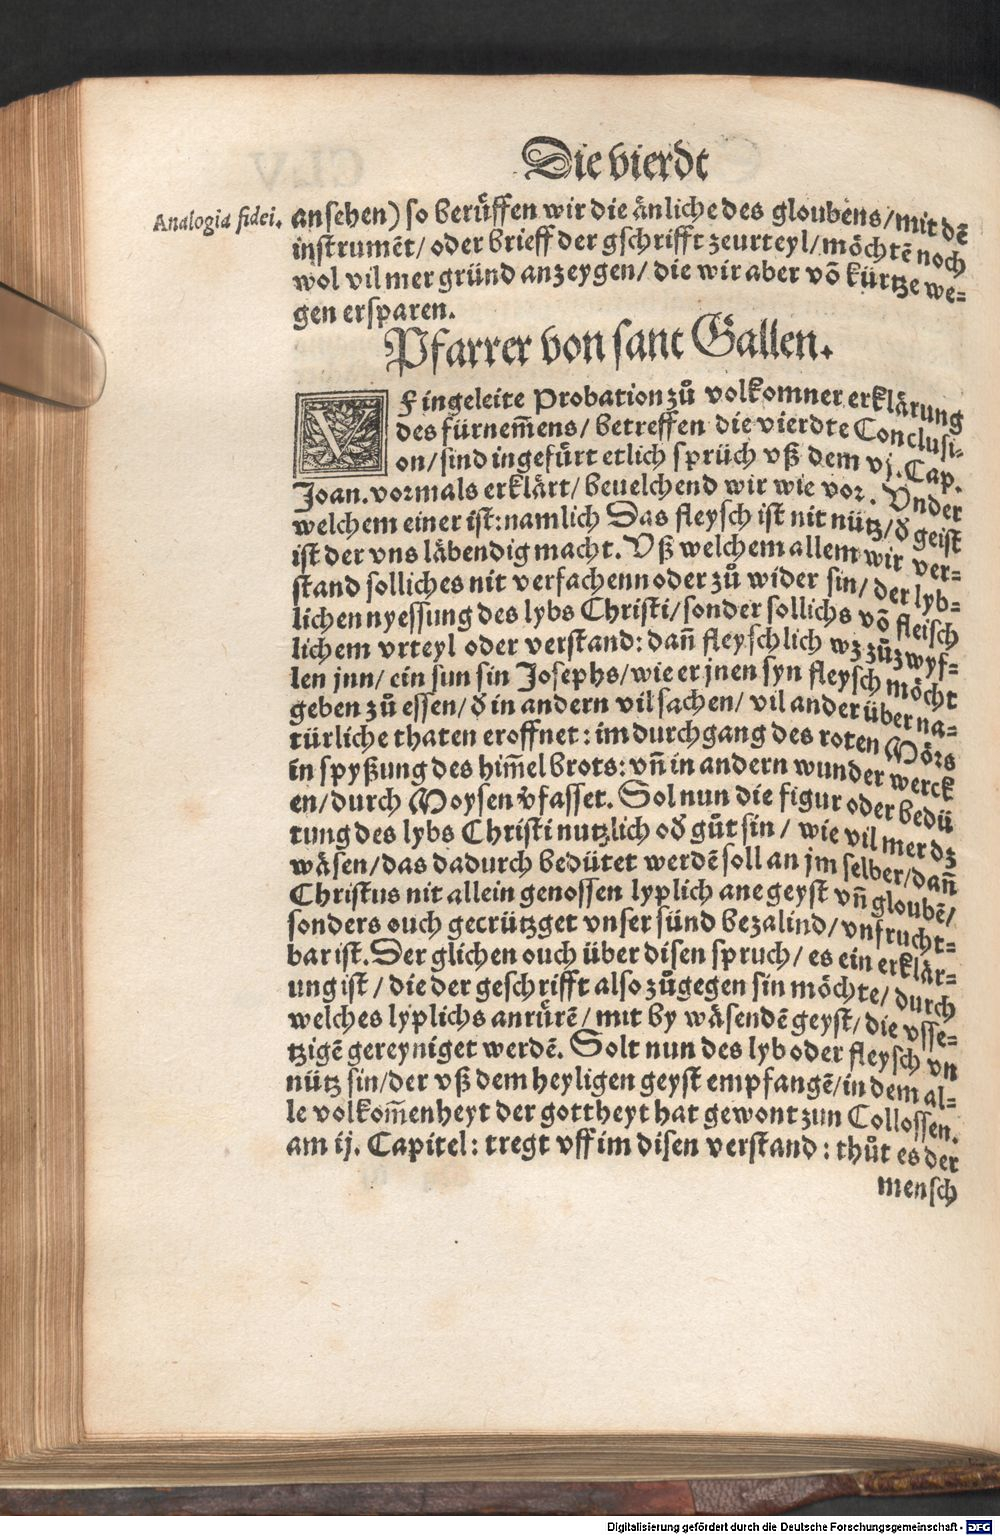 Die vierdt
Analogia fidei.
ansehen) so berůffen wir die änliche des gloubens/ mit dē
instrumēt/ oder brieff der gschrifft zeurteyl/ möchtē noch
wol vil mer gründ anzeygen/ die wir aber vō kürtze we-
gen ersparen.
Pfarrer von sant Gallen.
VF ingeleite Probation zů volkomner erklärung
des fürnem̄ens/ betreffen die vierdte Conclusi-
on/ sind ingefürt etlich sprüch vß dem vj. Cap.
Joan. vormals erklärt/ beuelchend wir wie vor. Vnder
welchem einer ist: namlich Das fleysch ist nit nütz/ ď geist
ist der vns läbendig macht. Vß welchem allem wir ver-
stand solliches nit verfachenn oder zů wider sin/ der lyb-
lichen nyessung des lybs Christi/ sonder sollichs vō fleisch
lichem vrteyl oder verstand: dañ fleyschlich wz zůzwyf-
len jnn/ ein sun sin Josephs/ wie er jnen syn fleysch möcht
geben zů essen/ ď in andern vil sachen/ vil ander überna-
türliche thaten eroffnet: im durchgang des roten Mörs
in spyßung des him̄el brots: vñ in andern wunder werck
en/ durch Moysen v̄fasset. Sol nun die figur oder bedü
tung des lybs Christi nutzlich oď gůt sin/ wie vil mer dz
wäsen/ das dadurch bedütet werdē soll an jm selber/ dañ
Christus nit allein genossen lyplich ane geyst vñ gloubē/
sonders ouch gecrützget vnser sünd bezalind/ vnfrucht-
bar ist. Der glichen ouch über disen spruch/ es ein erklär-
ung ist/ die der geschrifft also zůgegen sin möchte/ durch
welches lyplichs anrürē/ mit by wäsendē geyst/ die vsse-
tzigē gereyniget werdē. Solt nun des lyb oder fleysch vn
nütz sin/ der vß dem heyligen geyst empfangē/ in dem al-
le volkom̄enheyt der gottheyt hat gewont zun Collossen.
am ij. Capitel: tregt vff im disen verstand: thůt es der
mensch
Digitalisierung gefördert durch die Deutsche Forschungsgemeinschaft - DFG